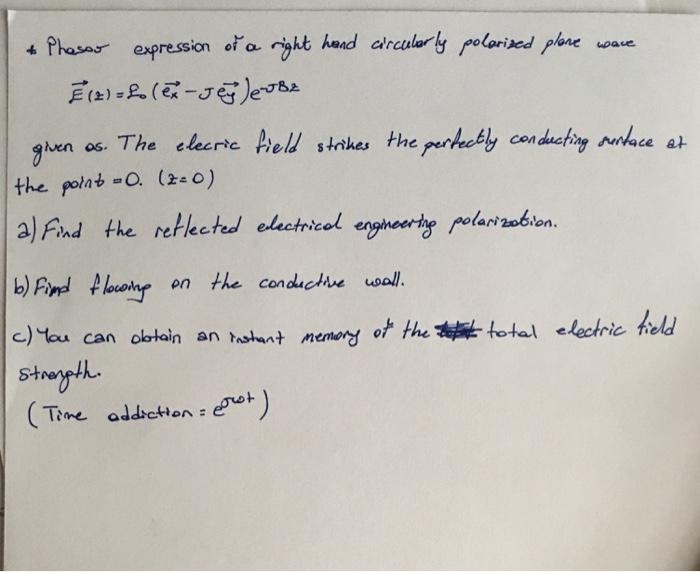 * Phasor expression of a right hand circularly polarized plane wave
E⃗(z) = E₀ (e⃗x - J e⃗y) e^-JBz
given as. The elecric field strikes the perfectly conducting surface at
the point = 0. (z = 0)
a) Find the reflected electrical engineering polarization.
b) Find flowing on the conductive wall.
c) You can obtain an instant memory of the total electric field
strength.
(Time addiction = e^jwt)